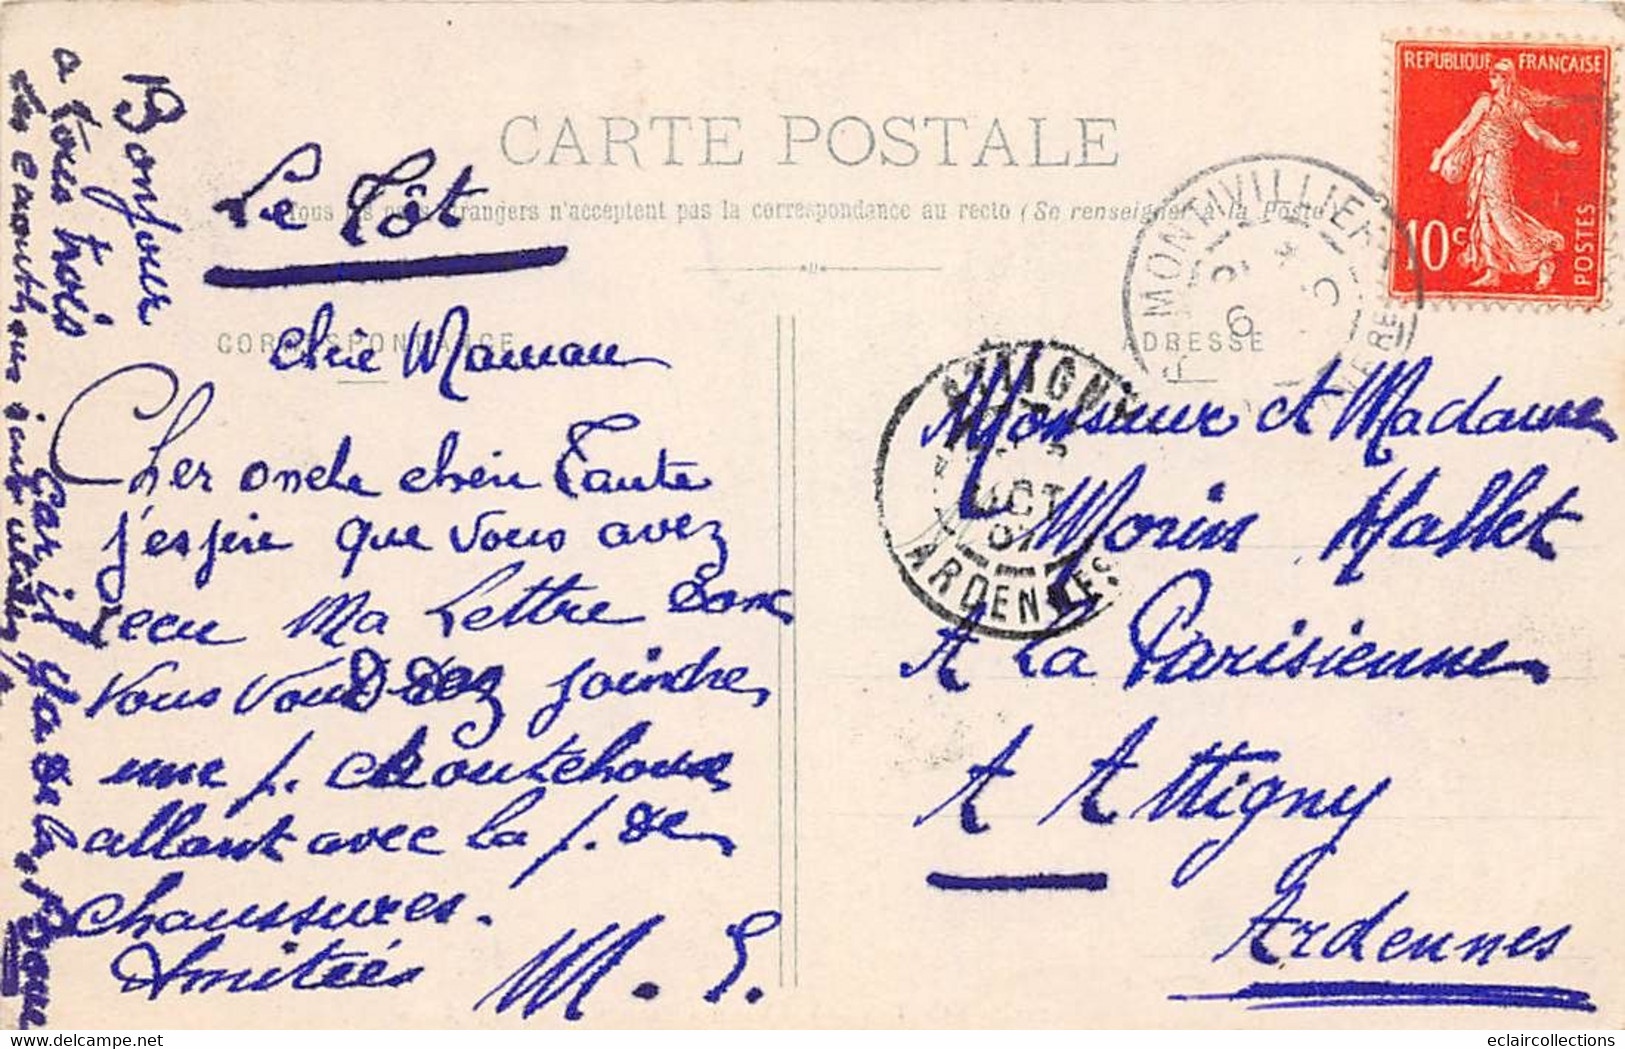 CARTE POSTALE
Tous les pays étrangers n'acceptent pas la correspondance au recto (Se renseigner à la Poste)
CORRESPONDANCE
ADRESSE
REPUBLIQUE FRANÇAISE
10c
POSTES
MONTVILLIERS
6
ATTIGNY
OCT
07
ARDENNES
Le Tôt
chère Maman
Cher oncle chère Tante
j'espère que vous avez
recu Ma Lettre donc
vous voudrez joindre
une p. caoutchouc
allant avec la p. de
chaussures.
Amitiés M. S.
Bonjour
a tous trois
les caoutchouc sont utiles
car il y a de la boue
Monsieur et Madame
Morin Hallet
A La Parisienne
A Attigny
Ardennes
eclaircollections